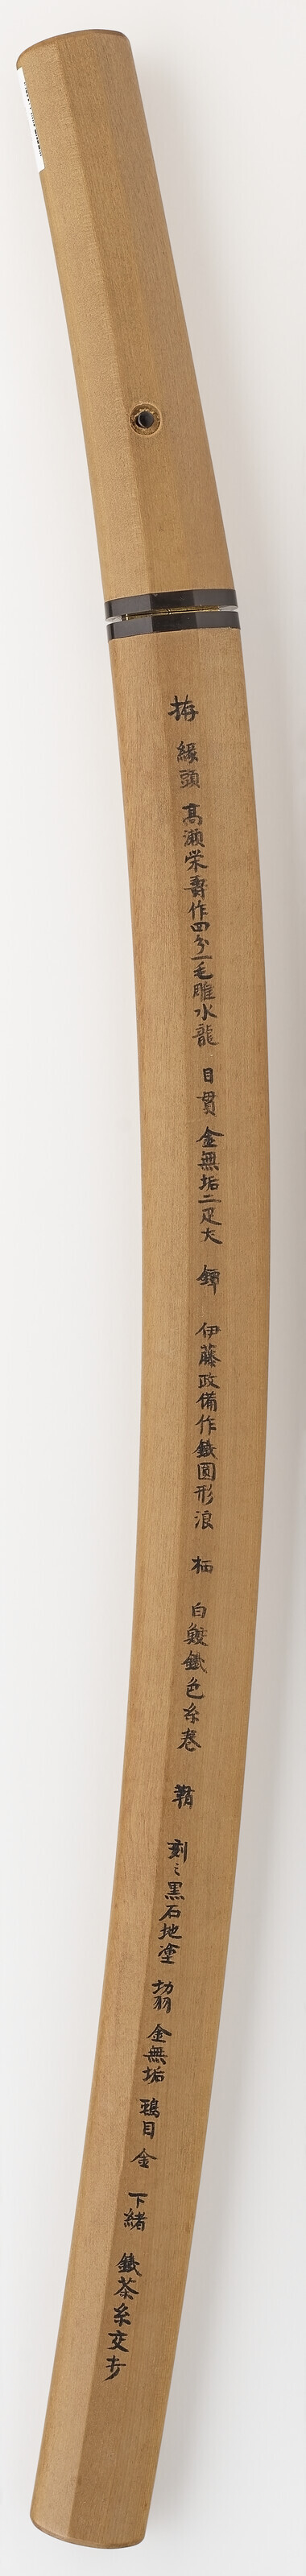 拵 縁頭 高瀬栄寿作四分一毛雕水龍 目貫 金無垢二疋犬 鐔 伊藤政備作鐵圓形浪 柄 白鮫鐵色糸巻 鞘 刻ミ黒石地塗 切羽 金無垢 鵐目 金 下緒 鐵茶糸交歩